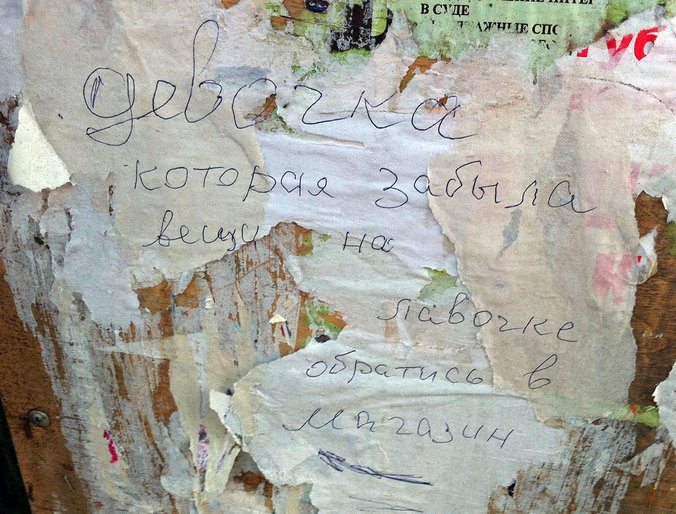 В СУДЕ
девочка
которая забыла
вещи на
лавочке
обратись в
магазин